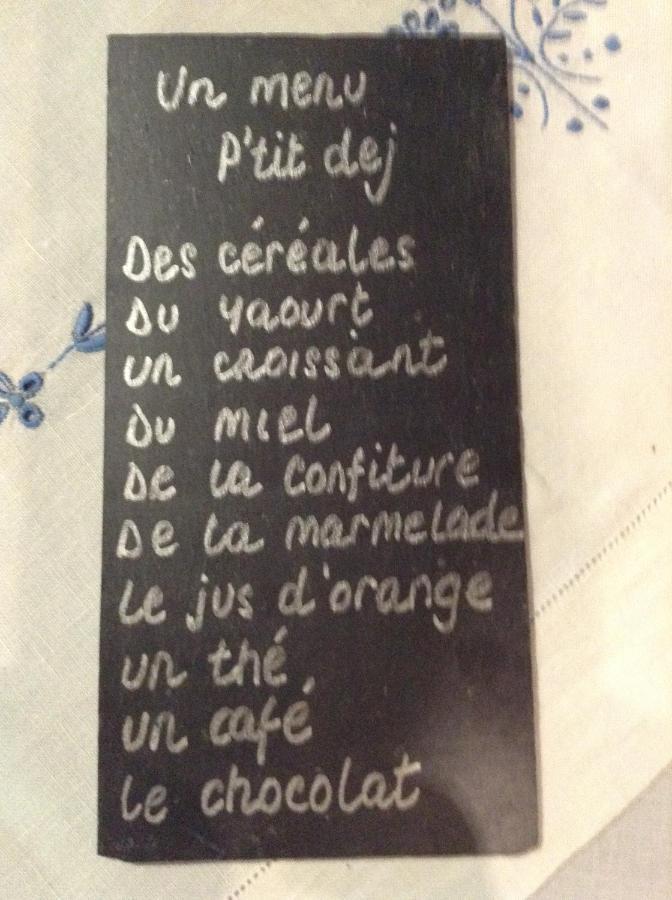 Un menu
P'tit dej
Des céréales
Du yaourt
un croissant
Du miel
De la confiture
De la marmelade
Le jus d'orange
un thé
un café
Le chocolat